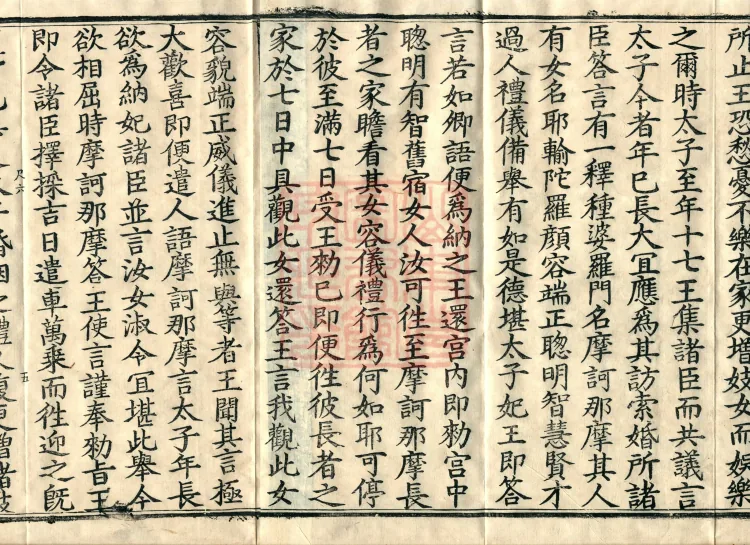 所止王恐愁憂不樂在家更增妓女而娛樂
之爾時太子至年十七王集諸臣而共議言
太子今者年已長大宜應爲其訪索婚所諸
臣答言有一釋種婆羅門名摩訶那摩其人
有女名耶輸陀羅顏容端正聰明智慧賢才
過人禮儀備舉有如是德堪太子妃王即答
言若如卿語便爲納之王還宮內即勑宮中
聰明有智舊宿女人汝可徃至摩訶那摩長
者之家瞻看其女容儀禮行爲何如耶可停
於彼至滿七日受王勑已即便徃彼長者之
家於七日中具觀此女還答王言我觀此女
容貌端正威儀進止無與等者王聞其言極
大歡喜即便遣人語摩訶那摩言太子年長
欲爲納妃諸臣並言汝女淑令宜堪此舉今
欲相屈時摩訶那摩答王使言謹奉勑旨王
即令諸臣擇採吉日遣車萬乗而徃迎之旣
尺六
五
婚姻之禮又復更增諸妓